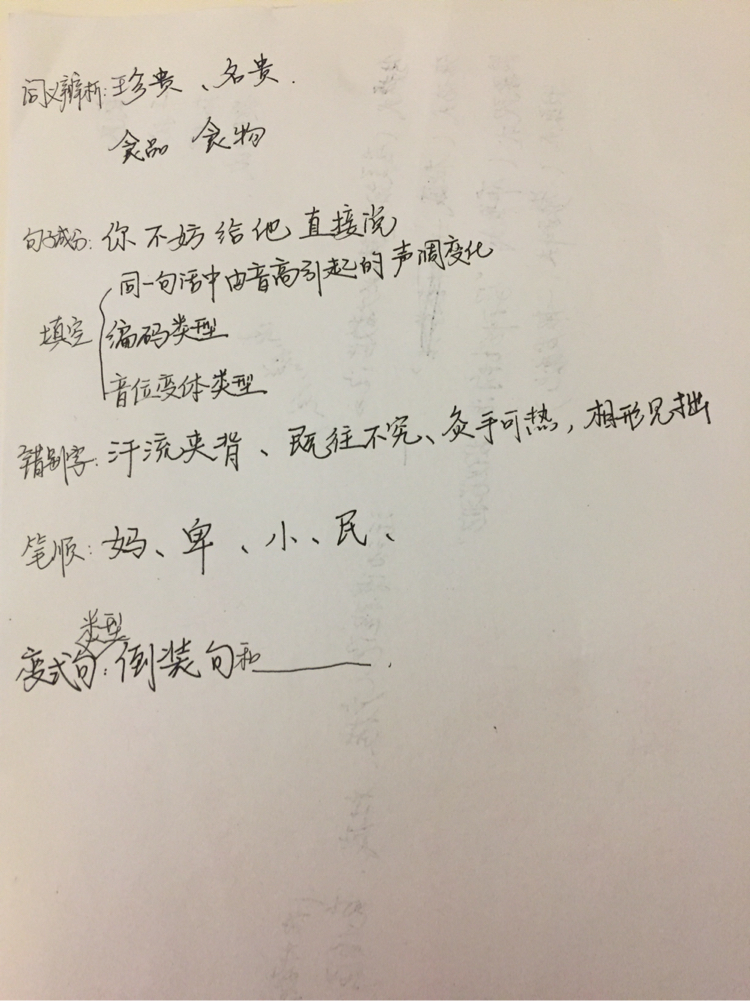 词义辨析:珍贵、名贵.
食品 食物
句子成分:你不妨给他直接说
填空 同一句话中由音高引起的声调变化
编码类型
音位变体类型
错别字:汗流夹背、既往不究、灸手可热,相形见拙
笔顺:妈、卑、小、民、
类型
变式句:倒装句和______.